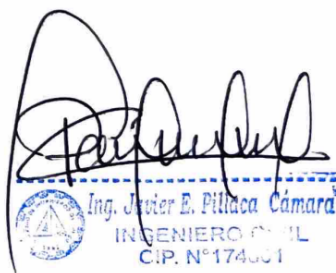 Ing. Javier E. Pillaca Cámara
INGENIERO CIVIL
CIP. N°